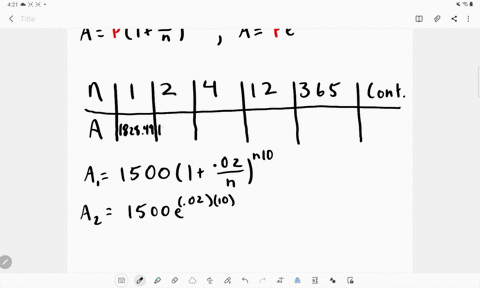 4:21
Title
A = P(1 + r/n) , A = Pe
n | 1 | 2 | 4 | 12 | 365 | Cont.
A | 1828.49 | 1
A₁ = 1500(1 + .02/n)^n10
A₂ = 1500e^(.02)(10)